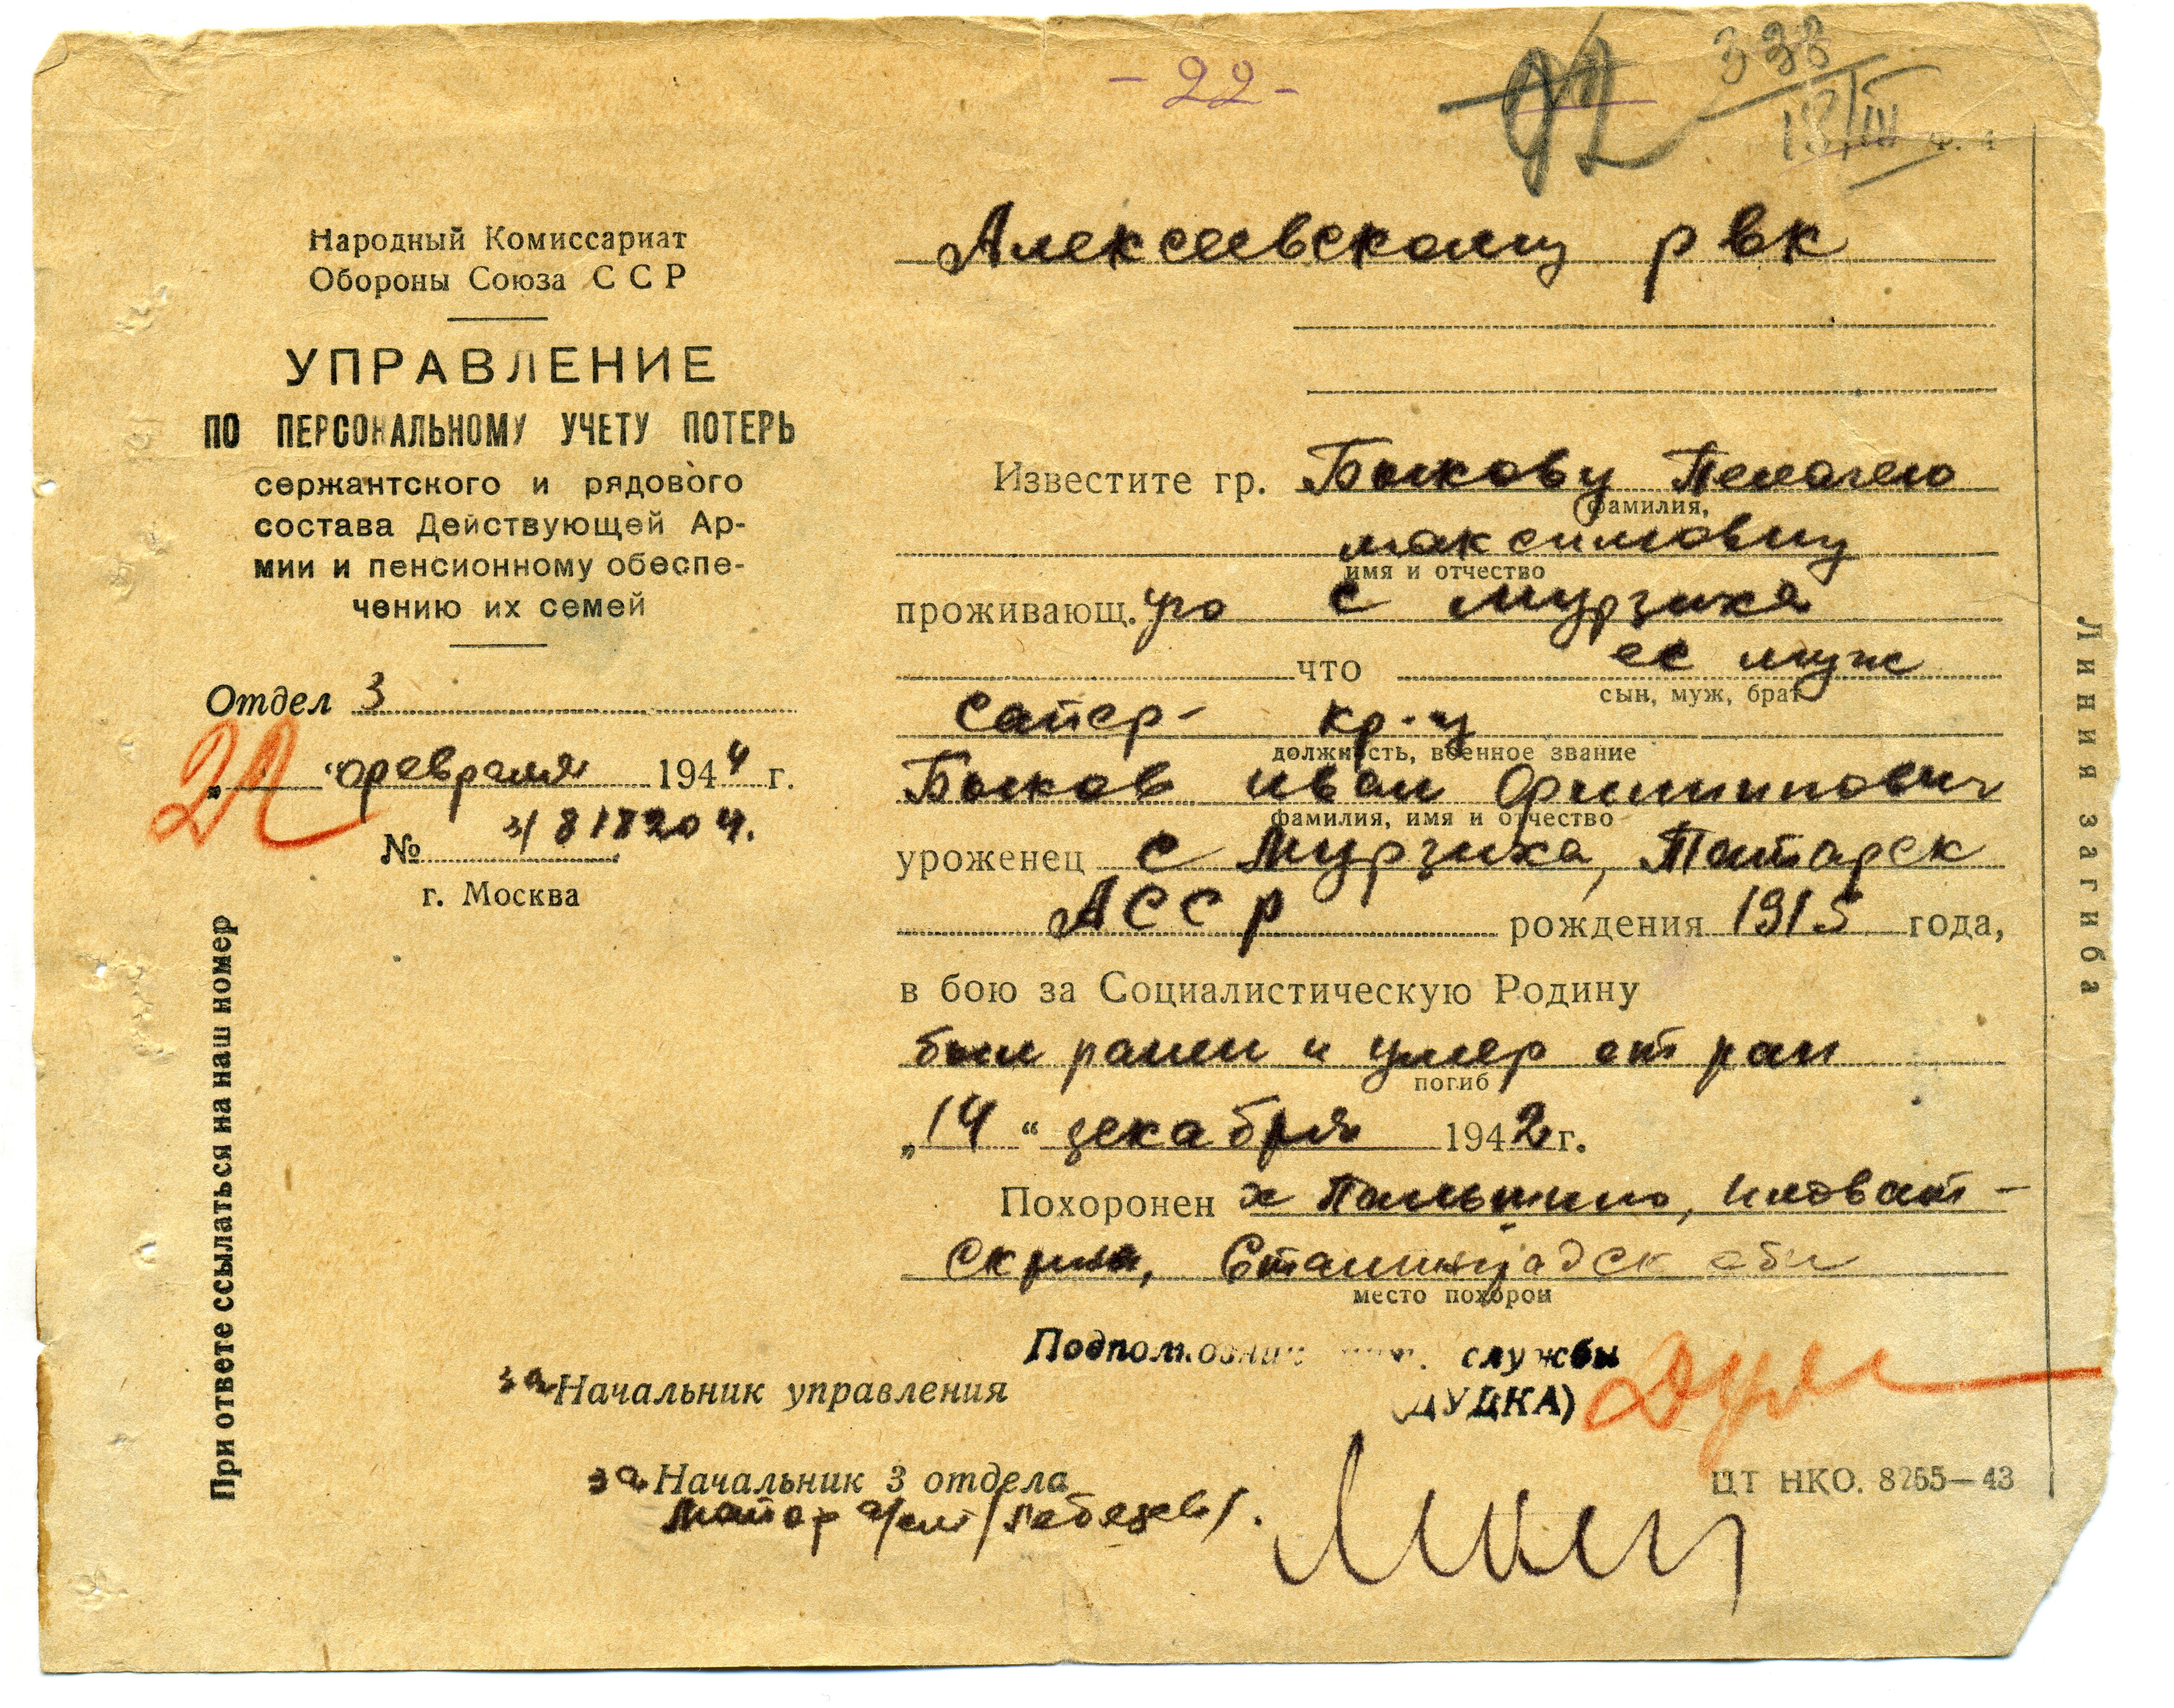 - 22 -
92
338
18/III
Ф. 4
Народный Комиссариат
Обороны Союза ССР
УПРАВЛЕНИЕ
ПО ПЕРСОНАЛЬНОМУ УЧЕТУ ПОТЕРЬ
сержантского и рядового
состава Действующей Ар-
мии и пенсионному обеспе-
чению их семей
Отдел 3
„22 “ февраля 1944 г.
№ 3/818204.
г. Москва
При ответе ссылаться на наш номер
Алексеевскому рвк
Известите гр. Быкову Пелагею
фамилия,
максимовну
имя и отчество
проживающ. ую с мурзиха
что ее муж
сын, муж, брат
сапер- кр-ц
должность, военное звание
Быков иван Филиппович
фамилия, имя и отчество
уроженец с Мурзиха, Татарск
АССР рождения 1915 года,
в бою за Социалистическую Родину
был ранен и умер от ран
погиб
„14“ декабря 1942 г.
Похоронен х Пальшино, иловат-
ск рна, Сталинградск обл
место похорон
Подполковник инт. службы
За Начальник управления (ДУДКА)
за Начальник 3 отдела
майор а/сл /Лебедев/.
ЦТ НКО. 8265—43
Линия загиба